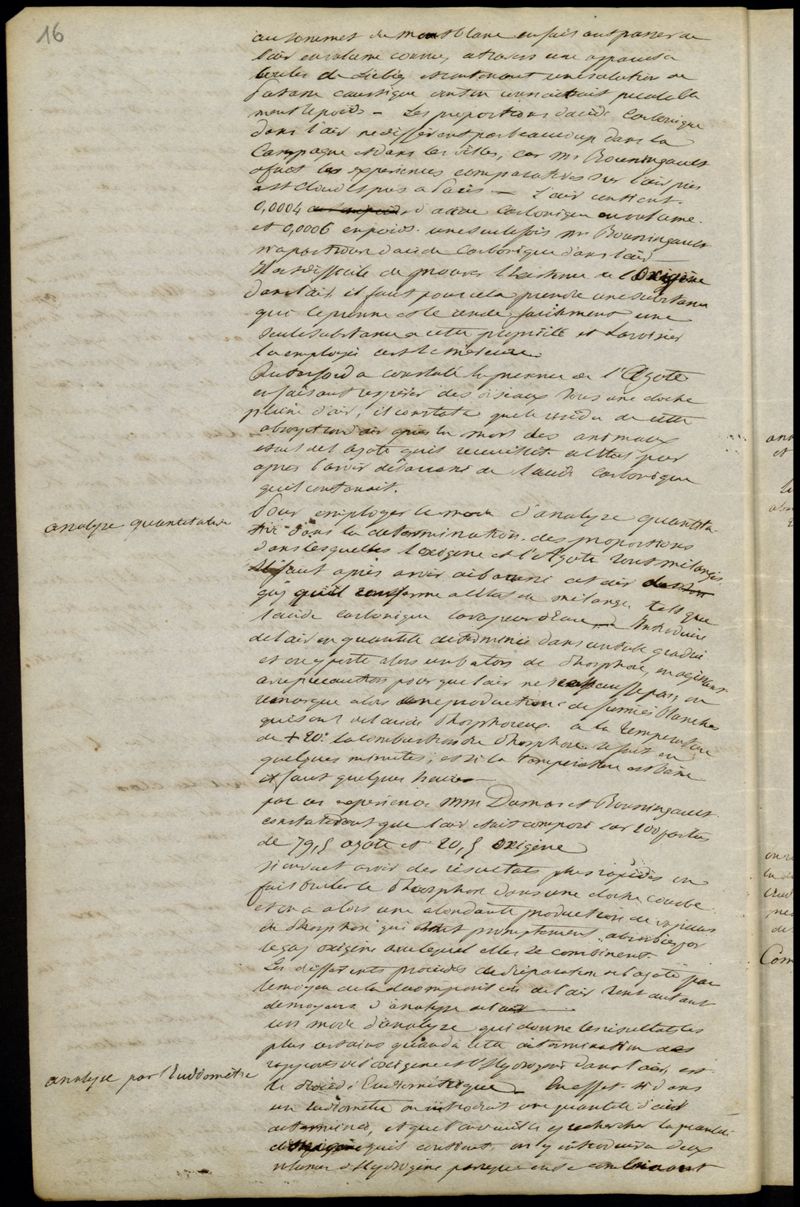 16
au sommet du mont blanc en faisant passer de
l'air en volume connu, à travers une appareil a
boules de Liebig contenant une solution de
potasse caustique dont on connaissait préalable
ment le poids — Les proportions d'acide Carbonique
dans l'air ne diffèrent pas beaucoup dans la
Campagne et dans les villes, car Mr Boussingault
a fait les expériences comparatives sur l'air pris
a St Cloud et pris a Paris — L'air contient
0,0004 d'acide Carbonique en volume
et 0,0006 en poids. une seule fois Mr Boussingault
proportion d'acide Carbonique dans l'air
Il est difficile de prouver l'existence de l'Oxigène
dans l'air, il faut pour cela prendre une substance
qui le prenne et le rende facilement une
seule substance a cette propriété et Lavoisier
l'a employé c'est le mercure.
Rutherford a constaté la présence de l'Azote
en faisant respirer des oiseaux sous une cloche
pleine d'air, il constata que le résidu de cette
absorption d'air après la mort des animaux
était de l'azote qu'il recueillit à l'état pur
après l'avoir débarrassé de l'acide Carbonique
qu'il contenait.
analyze quantitative
Pour employer le mode d'analyze quantita
tive dans la détermination des proportions
dans lesquelles l'oxigène et l'Azote sont mélangés
il faut après avoir débarrassé cet air
qu'il renferme a l'état de mélange tels que
l'acide carbonique la vapeur d'eau, Introduire
de l'air en quantité déterminée dans un tube gradué
et on y porte alors un baton de Phosphore, en agissant
avec précaution pour que l'air ne s'échauffe pas, on
remarque alors une production de fumées blanches
qui sont de l'acide Phosphoreux. à la température
de + 20° la combustion du Phosphore se fait en
quelques minutes, et si la température est basse
il faut quelques heures
par ces expériences MM Dumas et Boussingault
constatèrent que l'air était composé sur 100 parties
de 79,5 azote et 20,5 oxigène
si on veut avoir des résultats plus rapides on
fait bruler le Phosphore dans une cloche courbe
et on a alors une abondante production de vapeurs
de Phosphore qui sont promptement absorbées par
le gaz oxigène avec lequel elles se combinent
Les différents procédés de préparation de l'azote par
le moyen de la décomposition de l'air sont autant
de moyens d'analyze de l'air
Un mode d'analyze qui donne les résultats les
plus certains quand à cette détermination des
rapports de l'oxigène et l'Hydrogène dans l'air, est
analyze par l'Eudiomètre
le procédé Eudiométrique. En effet si dans
un Eudiomètre on introduit une quantité d'air
déterminée, et que l'on veuille y rechercher la quantité
d'oxigène qu'il contient, on y introduira deux
volumes d'Hydrogène puisque en se combinant